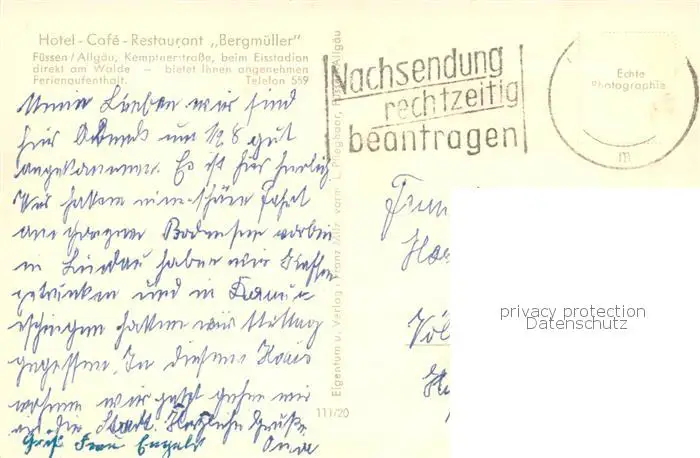 Hotel - Café - Restaurant „Bergmüller"
Füssen / Allgäu, Kemptnerstraße, beim Eisstadion
direkt am Walde — bietet Ihnen angenehmen
Ferienaufenthalt. Telefon 559
Meine Lieben wir sind
hier Abends um 1/2 8 gut
angekommen. Es ist hier herrlich
Wir hatten eine schöne Fahrt
am ganzen Bodensee vorbei
in Lindau haben wir Kaffee
getrunken und in
hatten wir Mittag
gegessen. In diesem Haus
wohnen wir jetzt gehen wir
in die Stadt. Herzliche Grüße
Oma
Gruß Frau Engels
Eigentum u. Verlag: Franz Milz vorm. L. Füssen/Allgäu
111/20
Nachsendung
rechtzeitig
beantragen
Echte
Photographie
m
privacy protection
Datenschutz